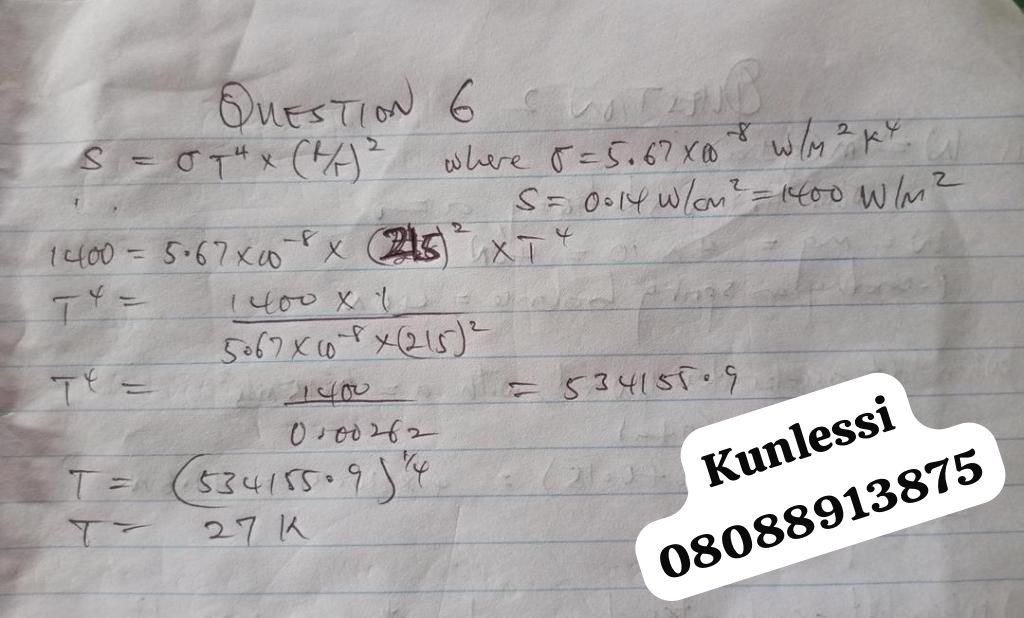 QUESTION 6
S = σT⁴ × (r/r)² where σ = 5.67 × 10⁻⁸ W/m² K⁴
S = 0.14 W/cm² = 1400 W/m²
1400 = 5.67 × 10⁻⁸ × (215)² × T⁴
T⁴ = 1400 × 1
5.67 × 10⁻⁸ × (215)²
T⁴ = 1400 = 534155.9
0.00262
T = (534155.9)^1/4
T = 27 K
Kunlessi
08088913875